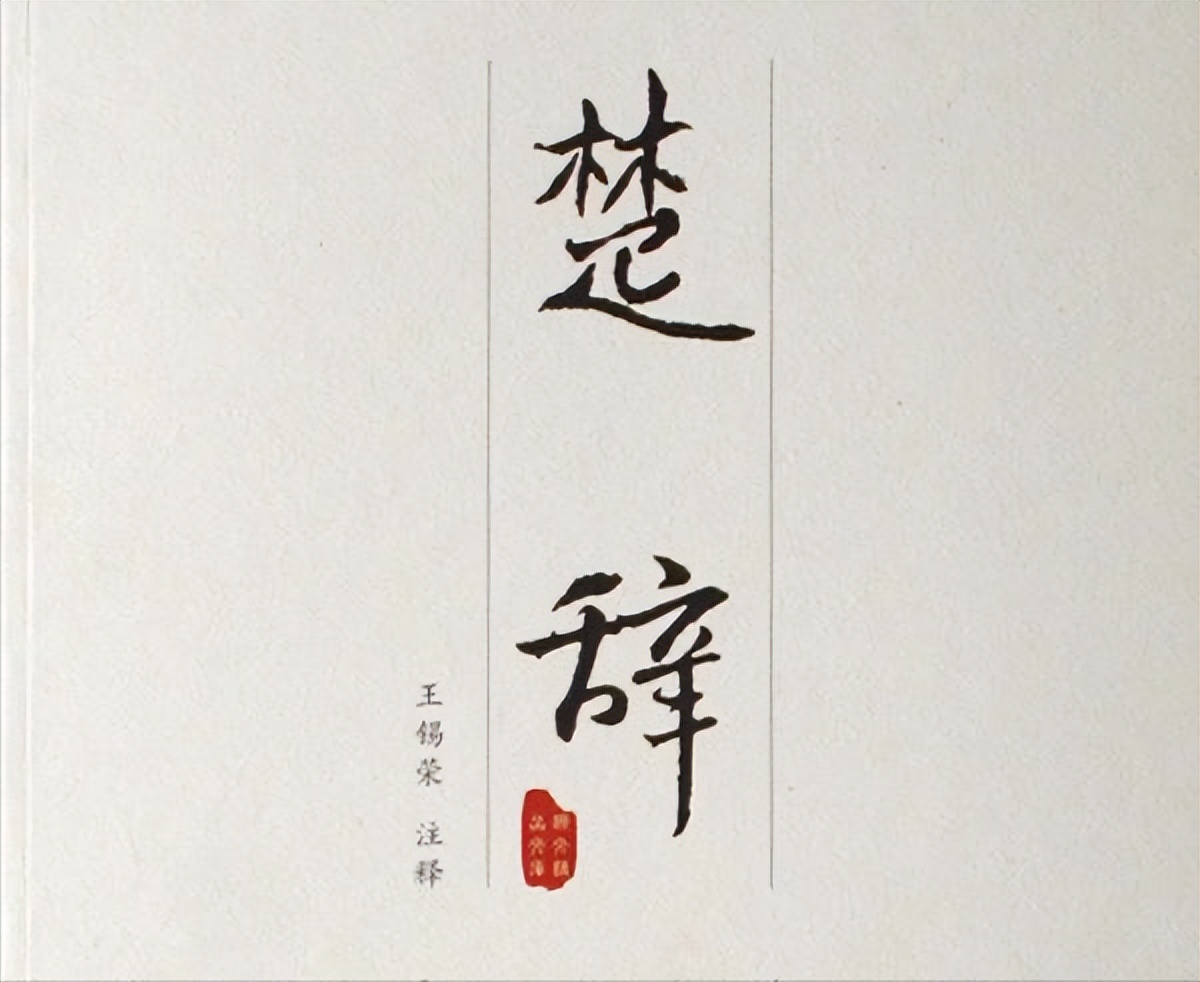 楚辞
王锡荣 注释